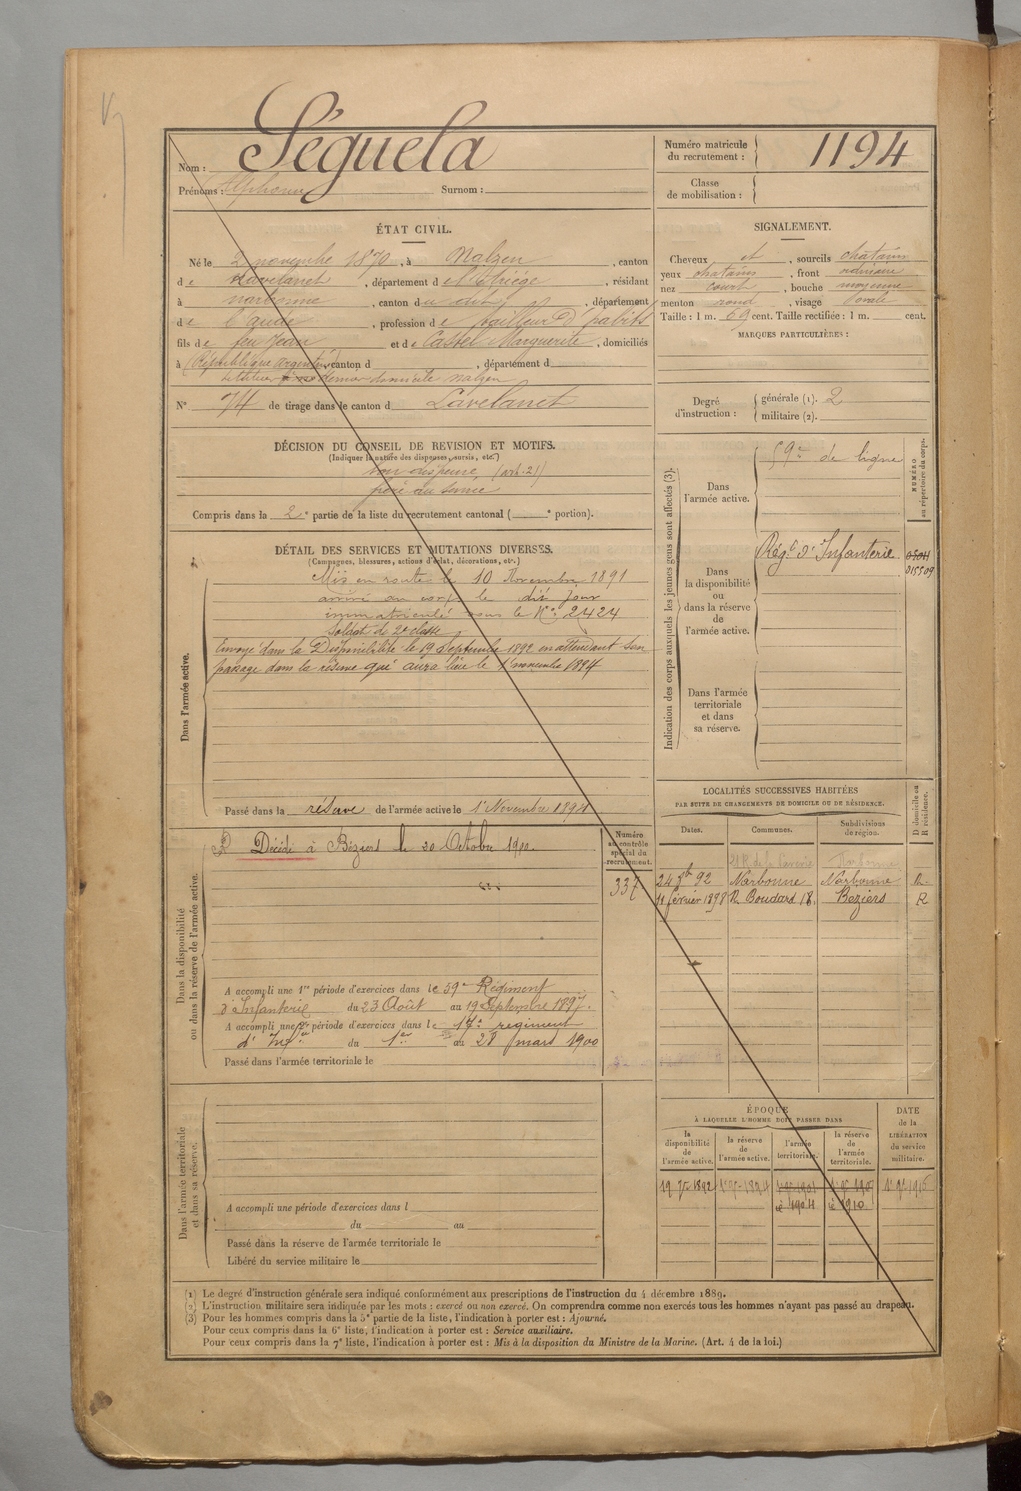 Nom : Séguela
Prénoms : Alphonse Surnom :
Numéro matricule du recrutement : 1194
Classe de mobilisation :
ÉTAT CIVIL.
Né le 2 novembre 1870, à Nalzen, canton
de Lavelanet, département de l'Ariége, résidant
à narbonne, canton du dit, département
de l'aude, profession de tailleur d'habits
fils de feu Jean et de Castel Marguerite, domiciliés
à (République argentine) canton d , département d
dernier domicile nalzen
N° 74 de tirage dans le canton d Lavelanet
SIGNALEMENT.
Cheveux et , sourcils chatains
yeux chatains, front ordinaire
nez court, bouche moyenne
menton rond, visage ovale
Taille : 1 m. 69 cent. Taille rectifiée : 1 m. cent.
MARQUES PARTICULIÈRES :
Degré d'instruction : générale (1). 2
militaire (2).
DÉCISION DU CONSEIL DE REVISION ET MOTIFS.
(Indiquer la nature des dispenses, sursis, etc.)
bon dispensé (art. 21)
frère au service
Compris dans la 2e partie de la liste du recrutement cantonal ( e portion).
DÉTAIL DES SERVICES ET MUTATIONS DIVERSES.
(Campagnes, blessures, actions d'éclat, décorations, etc.)
Dans l'armée active.
Mis en route le 10 Novembre 1891
arrivé au corps le dit jour
immatriculé sous le N° 2424
Soldat de 2e classe
Envoyé dans la Disponibilité le 19 Septembre 1892 en attendant son
passage dans la réserve qui aura lieu le 1 novembre 1894
Passé dans la réserve de l'armée active le 1er Novembre 1894
Indication des corps auxquels les jeunes gens sont affectés (3).
NUMÉRO au répertoire du corps.
Dans l'armée active.
59e de ligne
Dans la disponibilité ou dans la réserve de l'armée active.
Régt d'Infanterie
015509
Dans l'armée territoriale et dans sa réserve.
Dans la disponibilité ou dans la réserve de l'armée active.
Numéro au contrôle spécial du recrutement.
337
R Décédé à Béziers le 20 Octobre 1900.
A accompli une 1re période d'exercices dans le 59e Régiment
d'Infanterie du 23 Août au 19 Septembre 1897.
A accompli une 2e période d'exercices dans le 17e regiment
d'Infie du 1er au 28 mars 1900
Passé dans l'armée territoriale le
LOCALITÉS SUCCESSIVES HABITÉES
PAR SUITE DE CHANGEMENTS DE DOMICILE OU DE RÉSIDENCE.
Dates. Communes. Subdivisions de région. D domicile ou R résidence.
Narbonne
24 9bre 92 Narbonne Narbonne R.
11 février 1898 R. Boudard 18. Beziers R
Dans l'armée territoriale et dans sa réserve.
A accompli une période d'exercices dans l
du au
Passé dans la réserve de l'armée territoriale le
Libéré du service militaire le
ÉPOQUE
À LAQUELLE L'HOMME DOIT PASSER DANS
la disponibilité de l'armée active. la réserve de l'armée active. l'armée territoriale. la réserve de l'armée territoriale. DATE de la LIBÉRATION du service militaire.
19 7bre 1892 1er 9bre 1894 1er 9bre 1901 1er 9bre 1916
1904 1910
(1) Le degré d'instruction générale sera indiqué conformément aux prescriptions de l'instruction du 4 décembre 1889.
(2) L'instruction militaire sera indiquée par les mots : exercé ou non exercé. On comprendra comme non exercés tous les hommes n'ayant pas passé au drapeau.
(3) Pour les hommes compris dans la 5e partie de la liste, l'indication à porter est : Ajourné.
Pour ceux compris dans la 6e liste, l'indication à porter est : Service auxiliaire.
Pour ceux compris dans la 7e liste, l'indication à porter est : Mis à la disposition du Ministre de la Marine. (Art. 4 de la loi.)